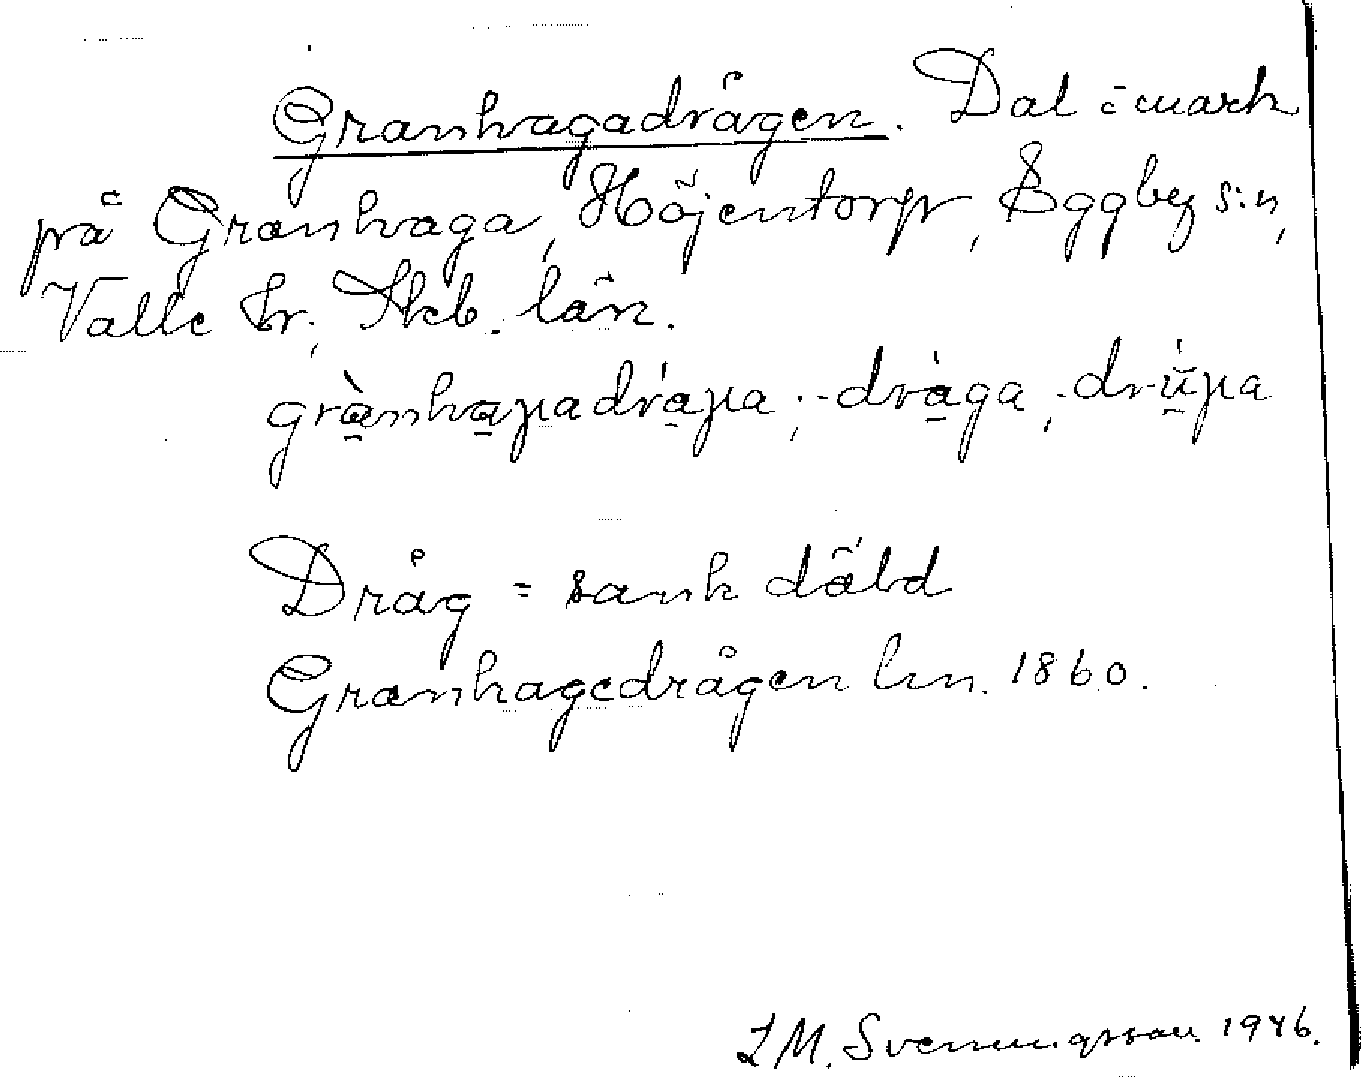 Granhagadrågen. Dal i mark
på Granhaga, Höjentorp, Eggby s:n,
Valle hr, Skb. län.
grànhaꬶadráꬶa, -dråga, -drŭꬶa
Dråg = sank däld
Granhagedrågen lm. 1860.
L M. Svenungsson 1946.